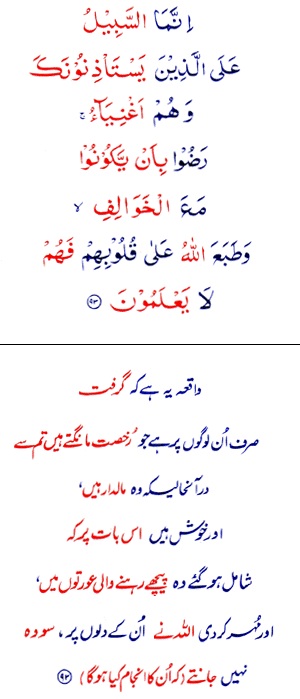 اِنَّمَا السَّبِيْلُ
عَلَى الَّذِيْنَ يَسْتَاْذِنُوْنَكَ
وَهُمْ اَغْنِيَآءُ ۚ
رَضُوْا بِاَنْ يَّكُوْنُوْا
مَعَ الْخَوَالِفِ ۙ
وَطَبَعَ اللّٰهُ عَلٰى قُلُوْبِهِمْ فَهُمْ
لَا يَعْلَمُوْنَ ﴿۹۳﴾
واقعہ یہ ہے کہ گرفت
صرف اُن لوگوں پر ہے جو رُخصت مانگتے ہیں تم سے
درآنحالیکہ وہ مالدار ہیں،
اور خوش ہیں اس بات پر کہ
شامل ہو گئے وہ پیچھے رہنے والی عورتوں میں،
اور مُہر کر دی اللہ نے اُن کے دلوں پر، سو وہ
نہیں جانتے (کہ اُن کا انجام کیا ہو گا) ﴿۹۳﴾